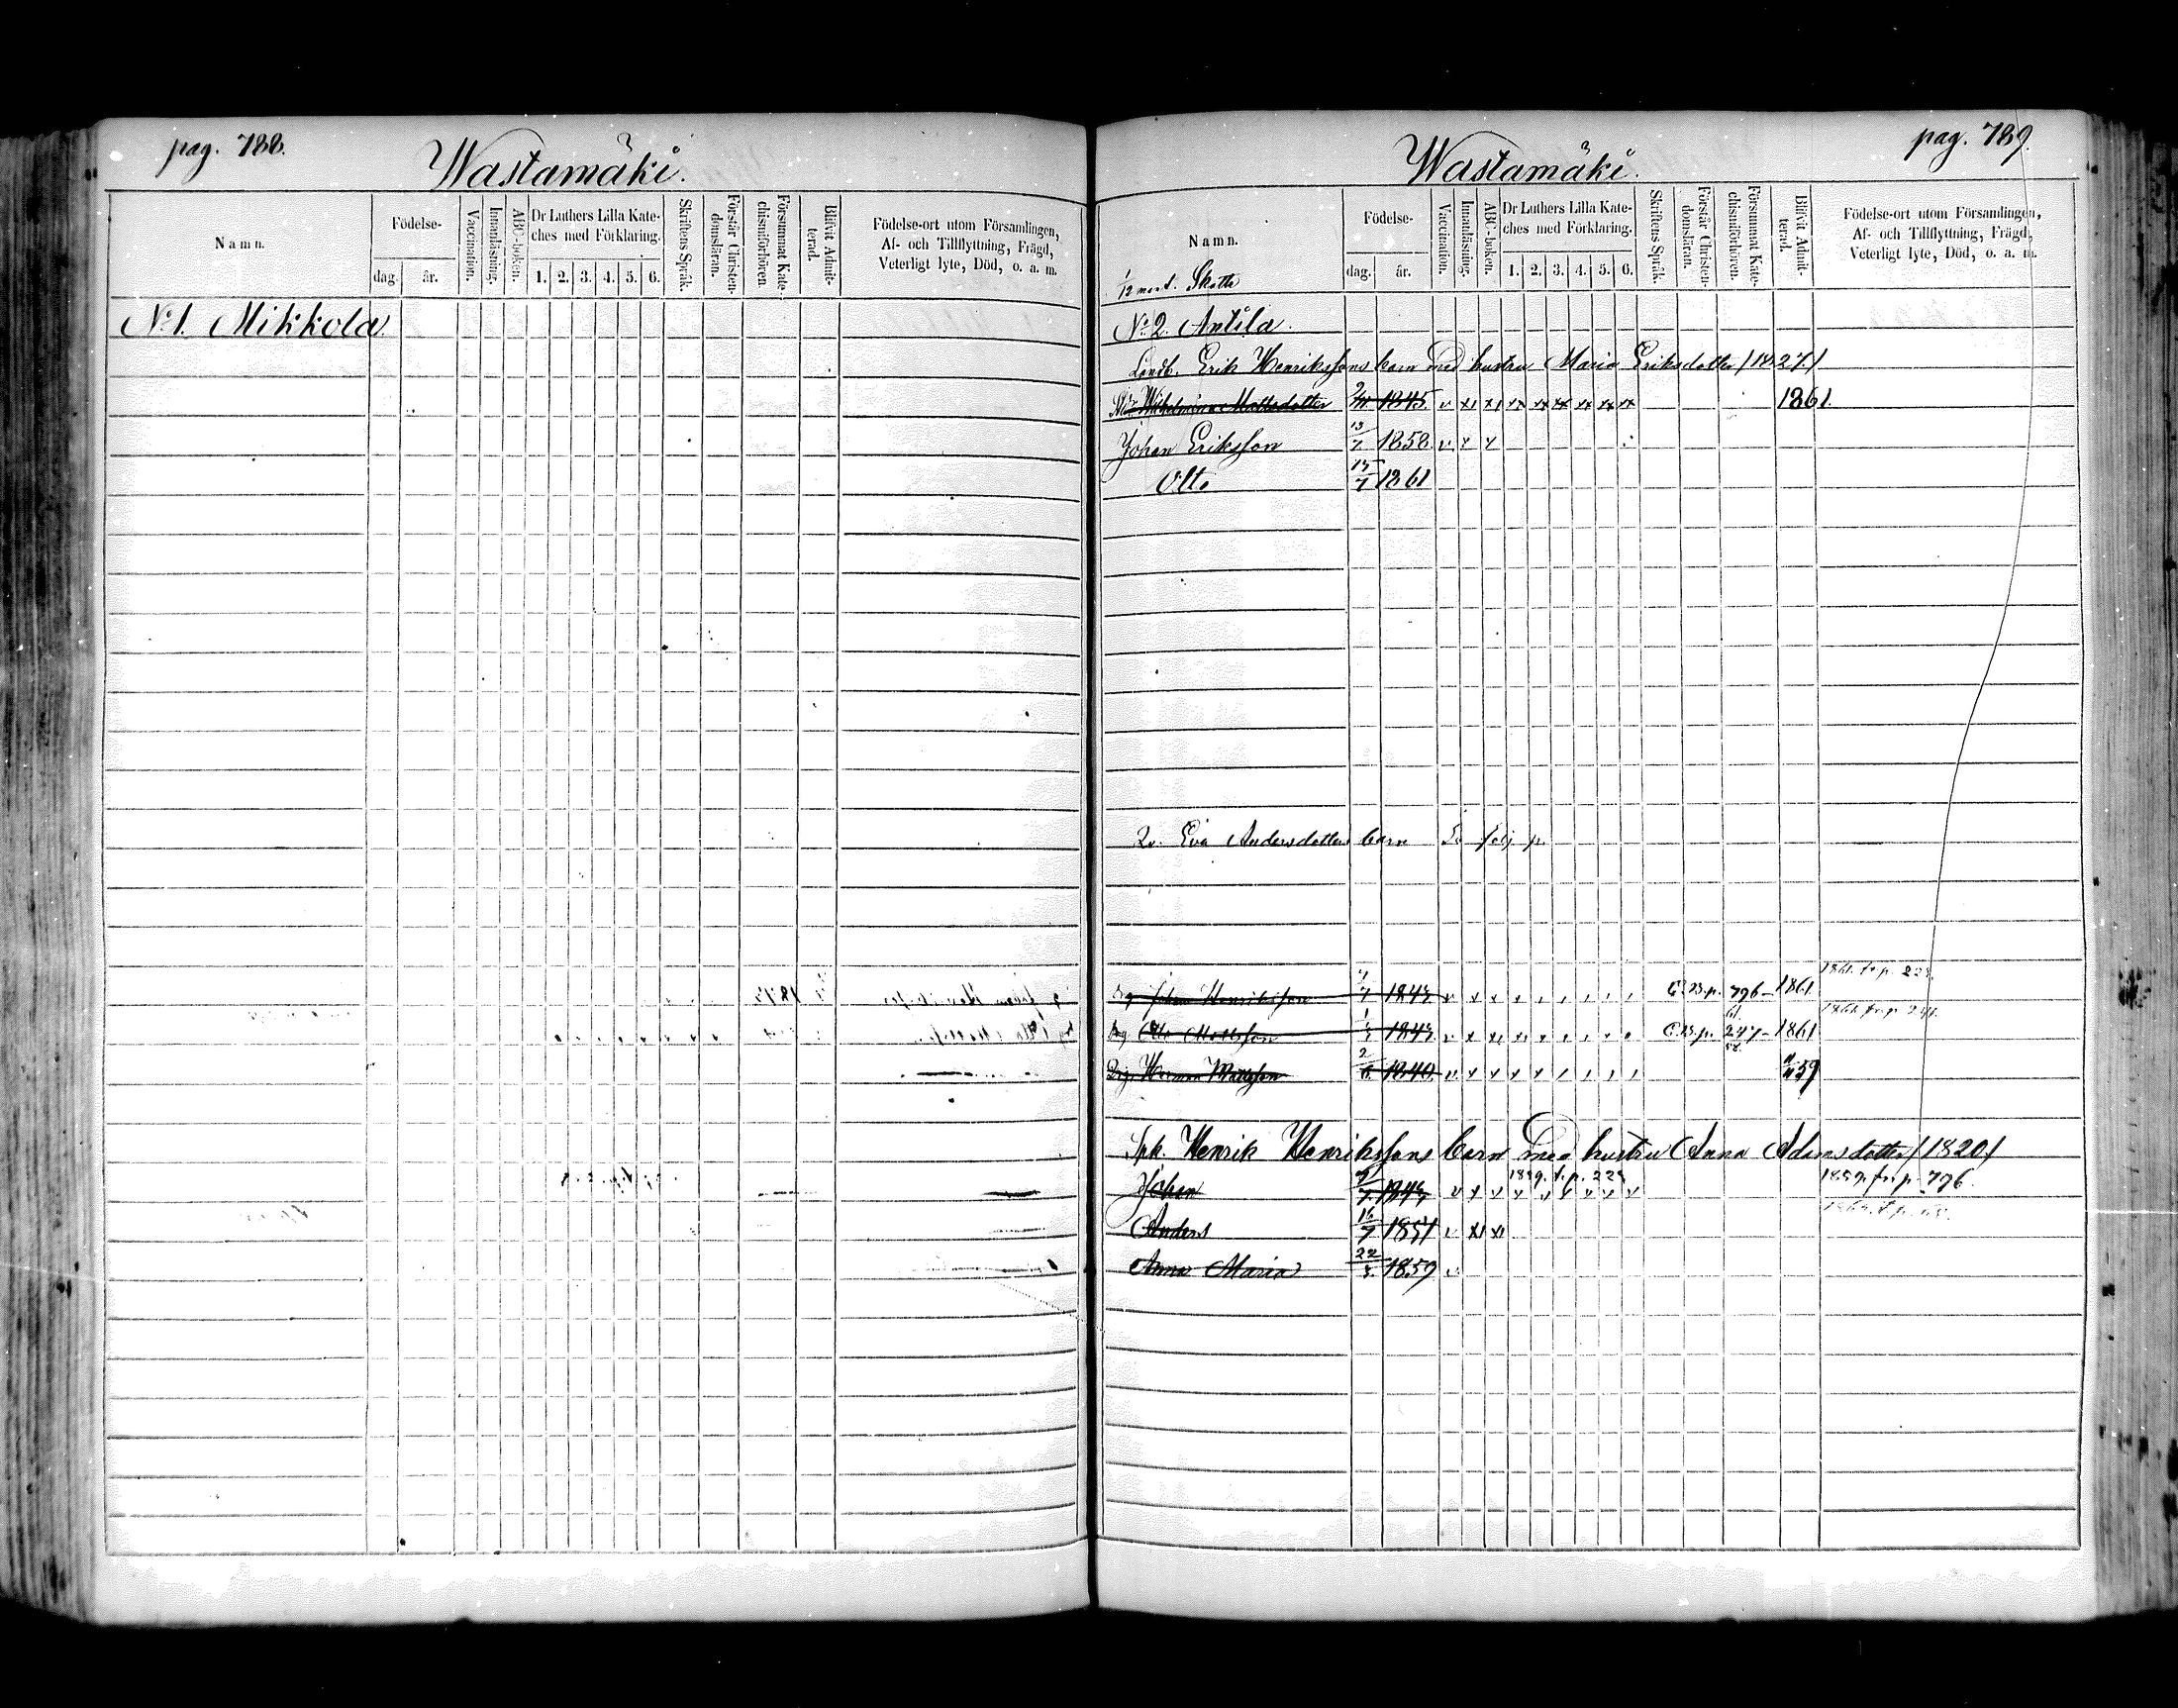 pag. 788.
Wastamäki.
Namn.
Födelse-
dag.
år.
Vaccination.
Innanläsning.
ABC-boken.
Dr Luthers Lilla Kate-
ches med Förklaring.
1. 2. 3. 4. 5. 6.
Skriftens Språk.
Förstår Christen-
domsläran.
Försummat Kate-
chismiförhören.
Blifvit Admit-
terad.
Födelse-ort utom Församlingen,
Af- och Tillflyttning, Frägd,
Veterligt lyte, Död, o. a. m.
No 1. Mikkola
pag. 789.
Wastamäki.
Namn.
Födelse-
dag.
år.
Vaccination.
Innanläsning.
ABC-boken.
Dr Luthers Lilla Kate-
ches med Förklaring.
1. 2. 3. 4. 5. 6.
Skriftens Språk.
Förstår Christen-
domsläran.
Försummat Kate-
chismiförhören.
Blifvit Admit-
terad.
Födelse-ort utom Församlingen,
Af- och Tillflyttning, Frägd,
Veterligt lyte, Död, o. a. m.
1/12 mant. Skatte
No 2. Antila.
Landb. Erik Henrikssons barn med hustru Maria Eriksdotter /1827/
Wilhelmina Mattsdotter 1845 1861
Johan Eriksson 13/7 1858
Otto 1861
Eva Andersdotters barn
Johan Henriksson 1843 796 1861
Otto Mattsson 1843 247 1861
Drg. Herman Mattsson 2/6 1840 59
Henrik Henrikssons barn med hustru Anna Adamsdotter /1820/
Johan 1843 1859. fr. p. 796
Anders 16/7 1851
Anna Maria 22 1859